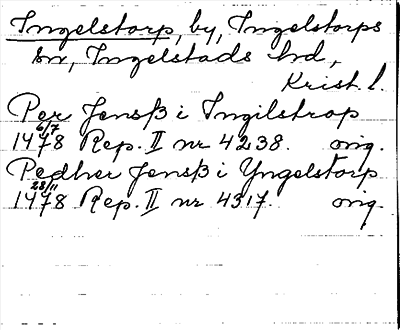 Ingelstorp, by, Ingelstorps
sn, Ingelstads hd,
Krist. l.
Per Jensß i Ingilstrop
6/7
1478 Rep. II nr 4238. orig.
Pedher Jensß i Yngelstorp
23/11
1478 Rep. II nr 4317. orig.